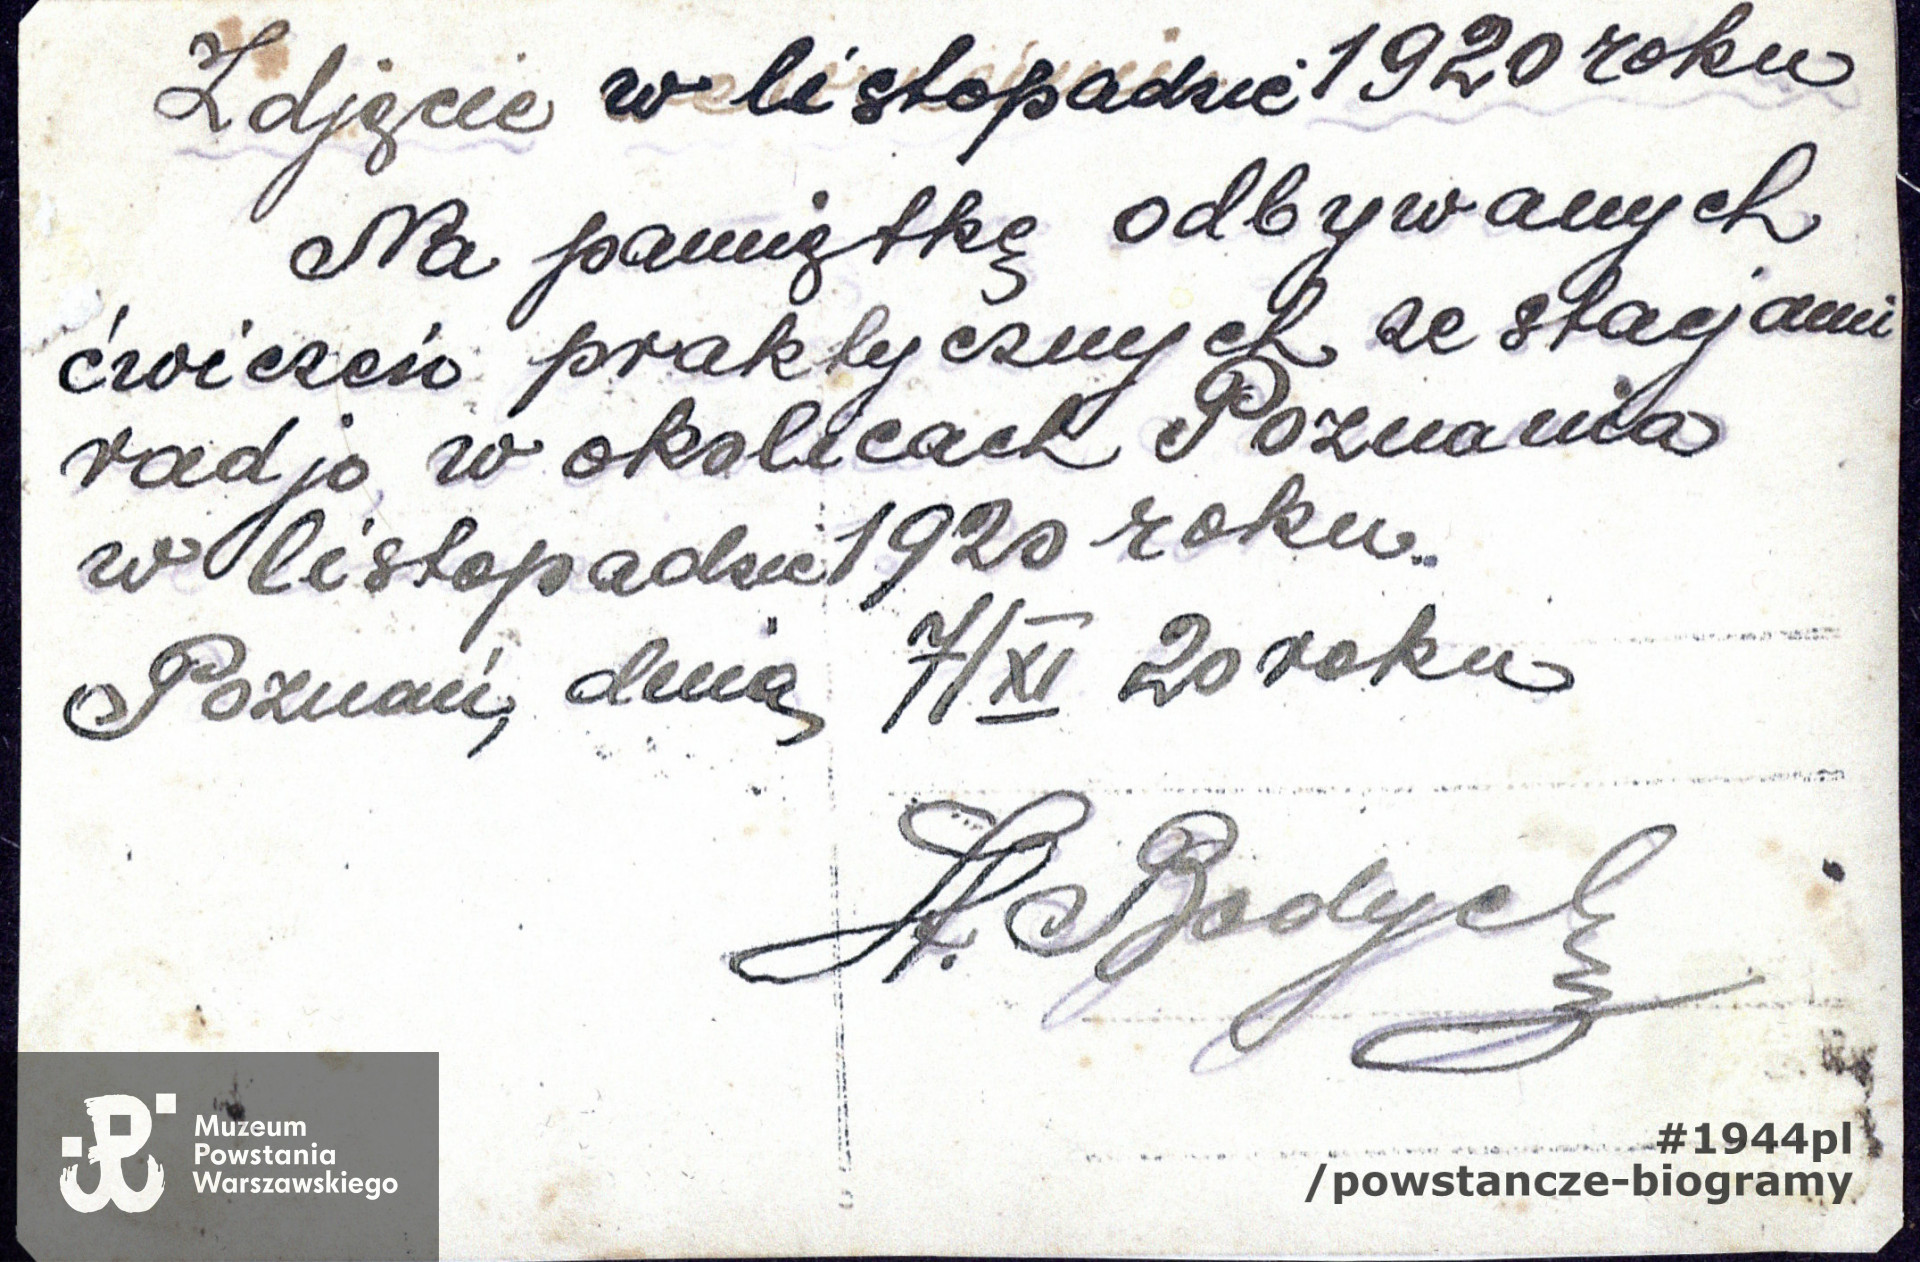 Zdjęcie w listopadzie 1920 roku
Na pamiątkę odbywanych
ćwiczeń praktycznych ze stacjami
radjo w okolicach Poznania
w listopadzie 1920 roku.
Poznań, dnia 7/XI 20 roku
St. Bodych
Muzeum
Powstania
Warszawskiego
#1944pl
/powstancze-biogramy